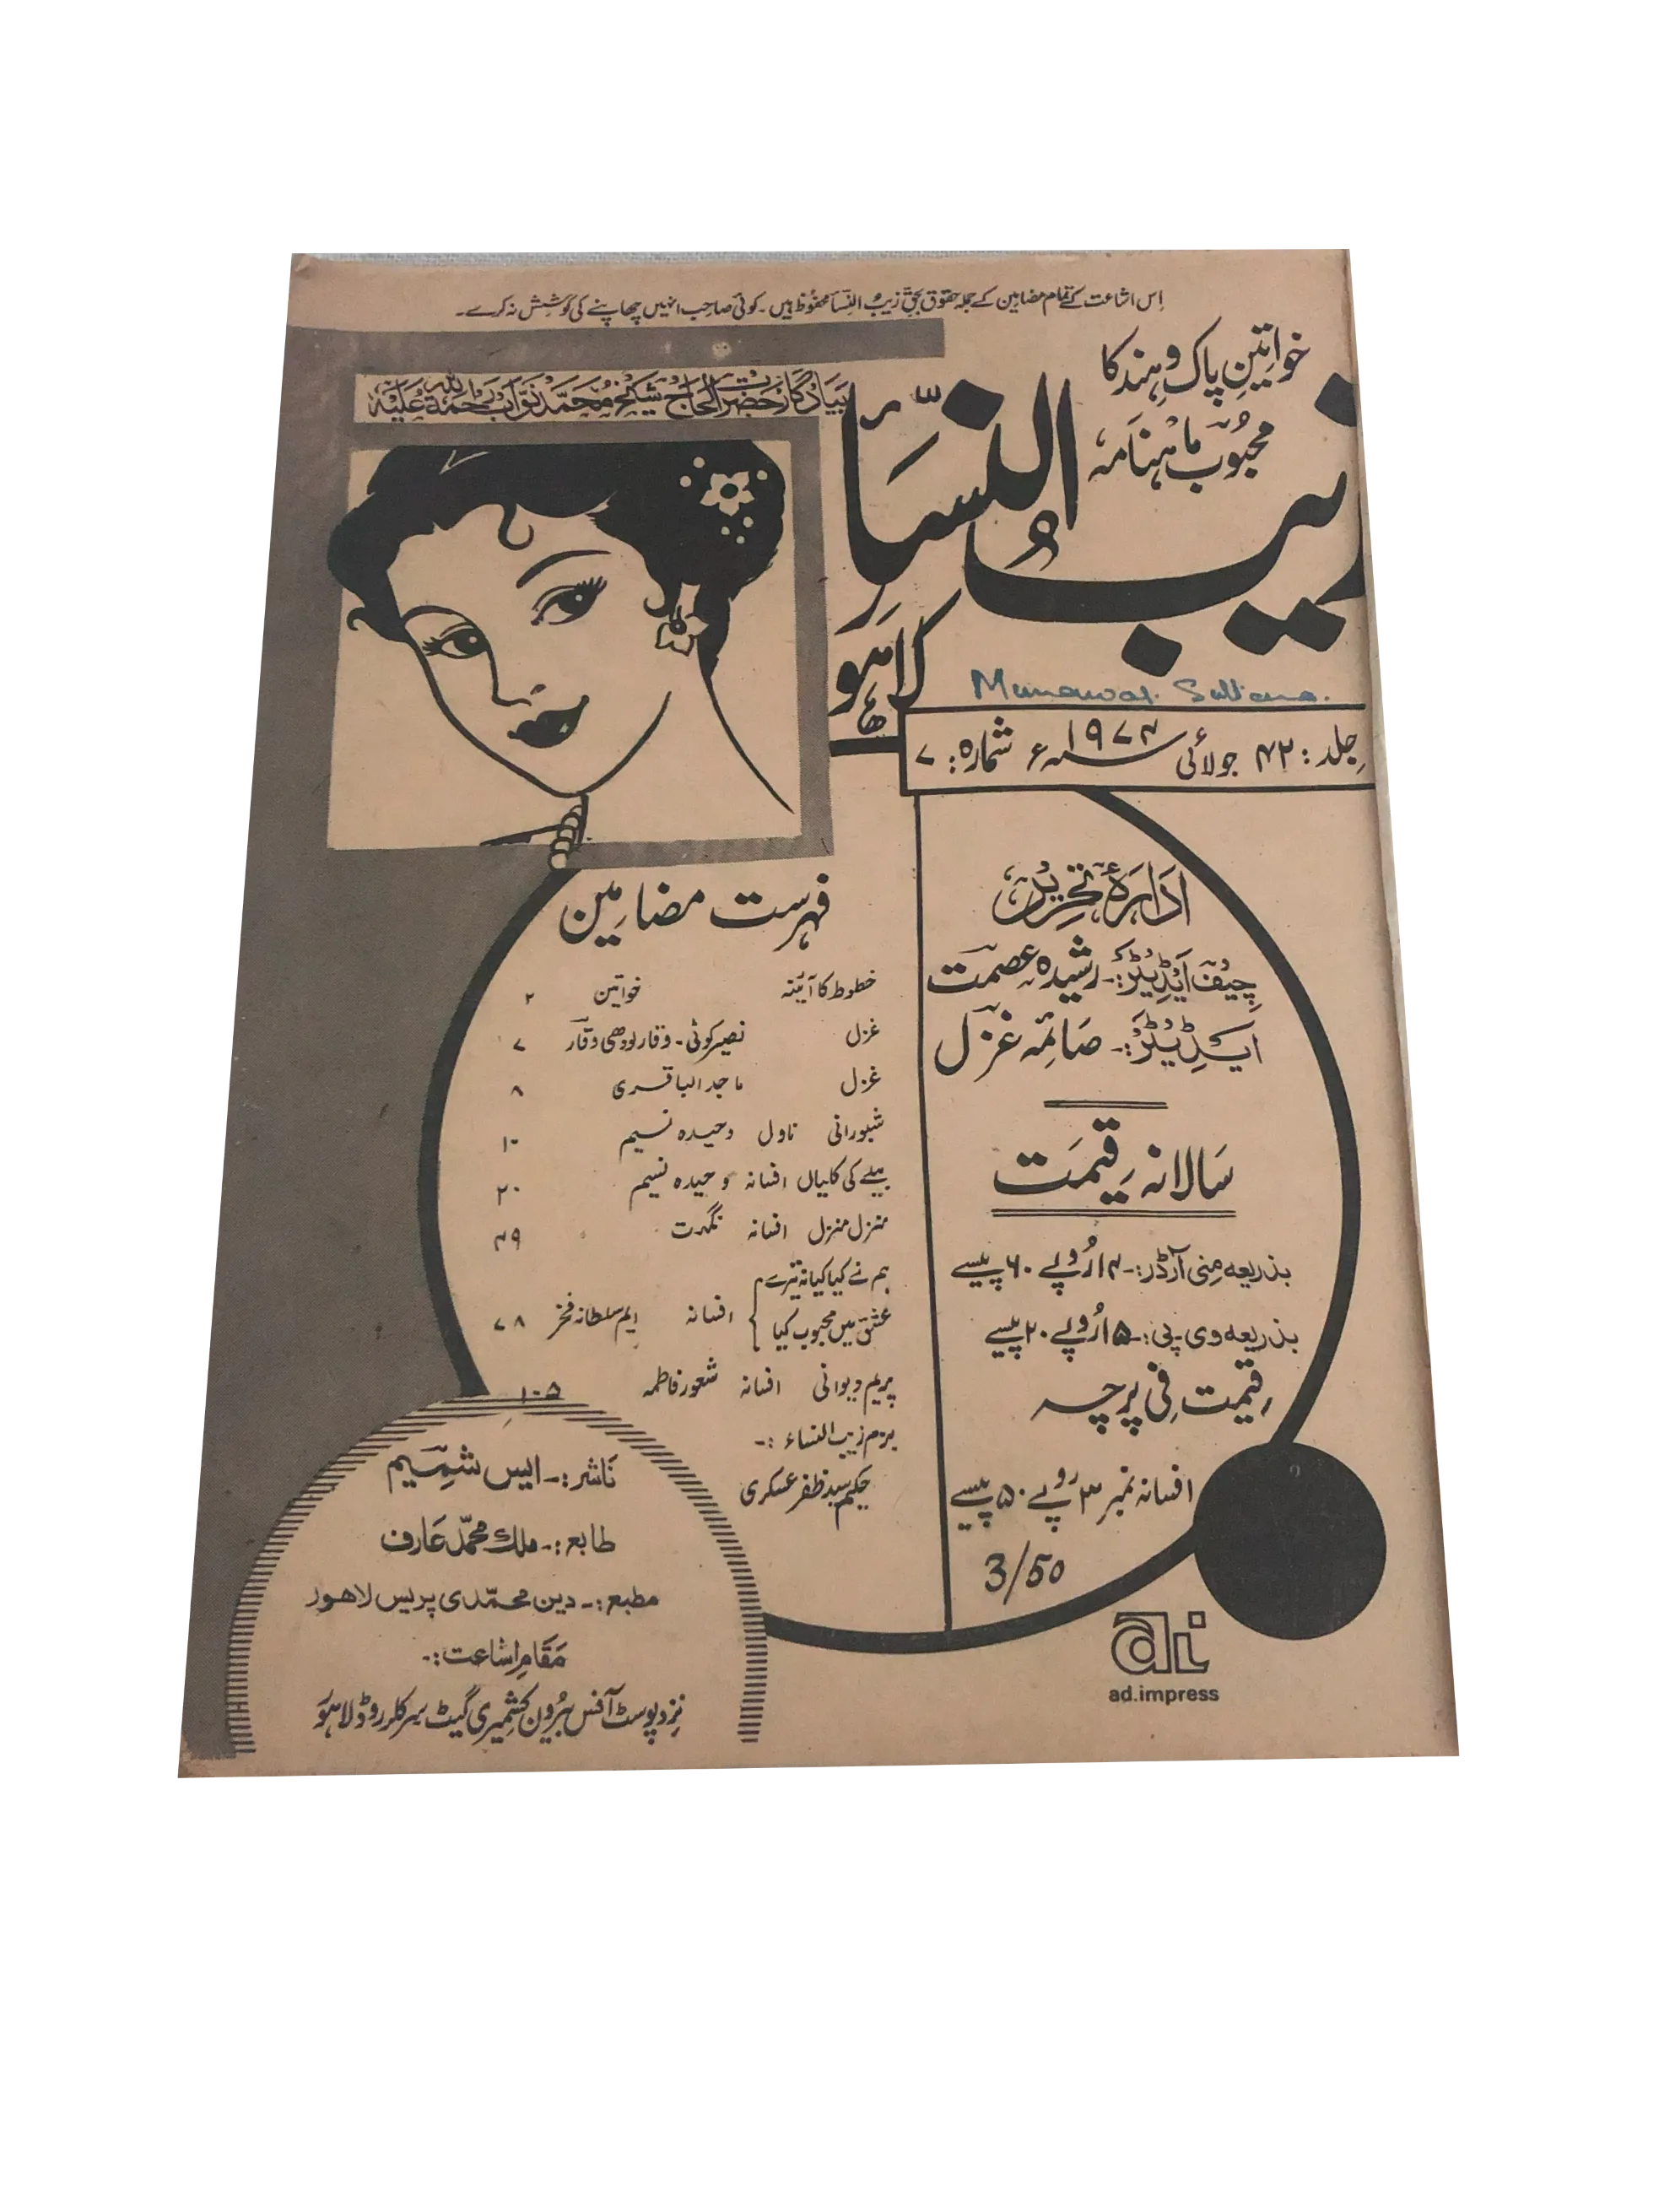 اِس اشاعت کے تمام مضامین کے جملہ حقوق بحق زیبُ النّسا محفوظ ہیں۔ کوئی صاحب انہیں چھاپنے کی کوشِش نہ کرے۔
خواتینِ پاک وہِند کا
محبُوب ماہنامہ
زیبُ النسّاء
لاہور
بیادگار حضرت الحاج شیخ محمّد نوّاب رحمۃ اللہ علیہ
Munawar Sultana.
جِلد: ۴۲ جولائی ۱۹۷۴ سنہ ء شمارہ: ۷
ادارۂ تحریر
چیف ایڈیٹر:۔ رشیدہ عصمت
ایڈیٹر:۔ صائمہ غزل
سالانہ قیمت
بذریعہ منی آرڈر:۔ ۱۴ روپے ۶۰ پیسے
بذریعہ وی پی:۔ ۱۵ روپے ۲۰ پیسے
قیمت فی پرچہ
افسانہ نمبر ۳ روپے ۵۰ پیسے
3/50
ai
ad.impress
فہرست مضامین
خطوط کا آئینہ خواتین ۲
غزل نصیر کوٹی۔ وقار لودھی وقار ۷
غزل ماجد الباقری ۸
شبورانی ناول وحیدہ نسیم ۱۰
بیلے کی کلیاں افسانہ وحیدہ نسیم ۲۰
منزل منزل افسانہ نگہت ۴۹
ہم نے کیا کیا نہ تیرے
عشق میں محبوب کیا افسانہ ایم سلطانہ فخر ۷۸
پریم دیوانی افسانہ شعور فاطمہ ۱۰۵
بزم زیب النساء :۔
حکیم سید ظفر عسکری
ناشر:۔ ایس شمیم
طابع:۔ ملک محمّد عارف
مطبع:۔ دین محمّدی پریس لاھور
مقامِ اشاعت:۔
نزد پوسٹ آفس بیرُون کشمیری گیٹ سرکلر روڈ لاہور